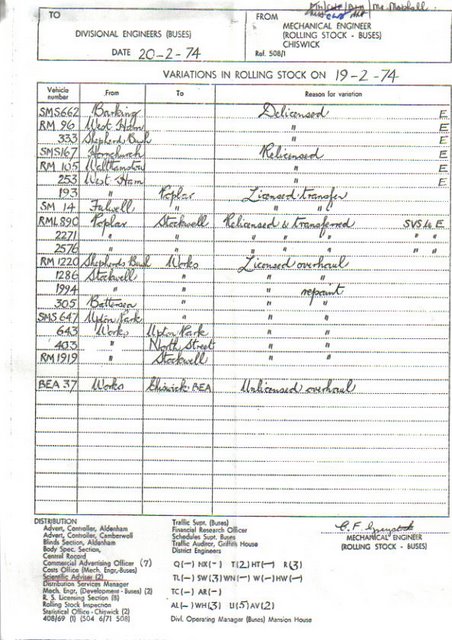 TO
DIVISIONAL ENGINEERS (BUSES)
DATE 20-2-74
Mr. Marshall.
FROM
MECHANICAL ENGINEER
(ROLLING STOCK - BUSES)
CHISWICK
Ref. 508/1
VARIATIONS IN ROLLING STOCK ON 19-2-74
Vehicle number From To Reason for variation
SMS662 Barking Delicensed E
RM 96 West Ham " E
333 Shepherds Bush " E
SMS167 Hornchurch Relicensed E
RM 105 Walthamstow " E
253 West Ham " E
193 " Poplar Licensed transfer
SM 14 Fulwell " " "
RML890 Poplar Stockwell Relicensed & transferred SVS to E.
2271 " " " " " "
2576 " " " " " "
RM 1220 Shepherds Bush Works Licensed overhaul
1286 Stockwell " " "
1994 " " " repaint
305 Battersea " " "
SMS 647 Upton Park " " "
643 Works Upton Park " "
403 " North Street " "
RM1919 " Stockwell " "
BEA 37 Works Chiswick BEA Unlicensed overhaul
DISTRIBUTION
Advert. Controller, Aldenham
Advert. Controller, Camberwell
Blinds Section, Aldenham
Body Spec. Section,
Central Record
Commercial Advertising Officer (7)
Costs Office (Mech. Engr.-Buses)
Scientific Adviser (2)
Distribution Services Manager
Mech. Engr. (Development - Buses) (2)
R. S. Licensing Section (8)
Rolling Stock Inspection
Statistical Office - Chiswick (2)
408/69 (1) (504 6/71 508)
Traffic Supt. (Buses)
Financial Research Officer
Schedules Supt. Buses
Traffic Auditor, Griffith House
District Engineers
Q(-) NX(-) T(2) HT(-) R(3)
TL(-) SW(3) WN(-) W(-) HW(-)
TC(-) AR(-)
AL(-) WH(3) U(5) AV(2)
Divl. Operating Manager (Buses) Mansion House
MECHANICAL ENGINEER
(ROLLING STOCK - BUSES)